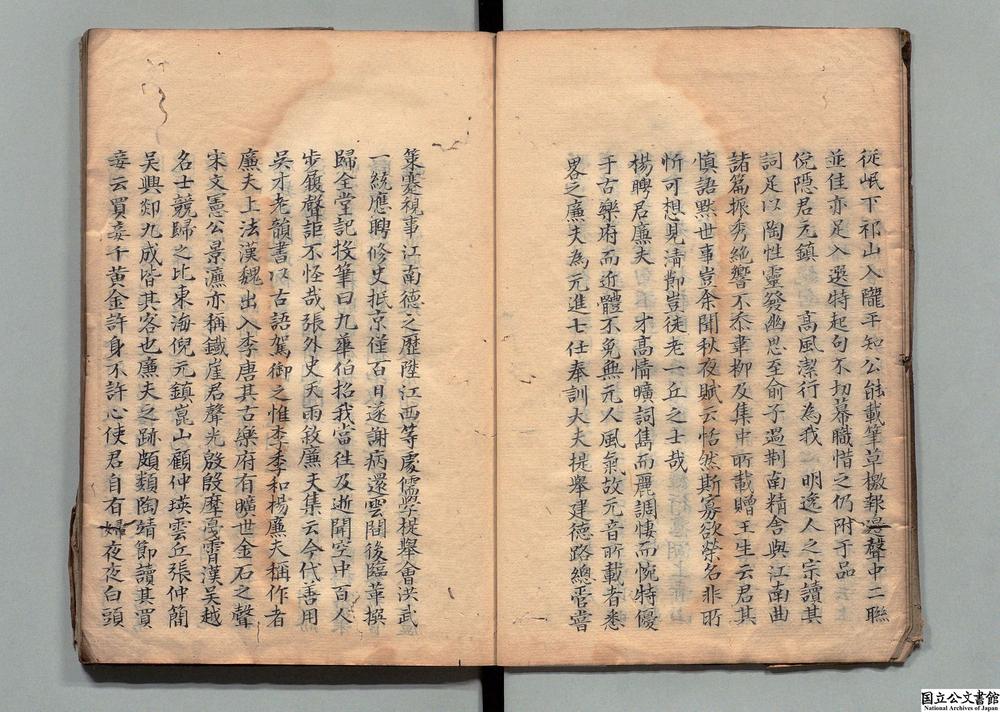 從岷下祁山入隴平知公能載筆草檄報邊聲中二聯
並佳亦足入選特起句不切幕職惜之仍附于品
倪隱君元鎮 高風潔行為我 明逸人之宗讀其
詞足以陶性靈發幽思至俞子過荆南精舍與江南曲
諸篇振秀絶響不忝韋柳及集中所載贈王生云君其
慎語默世事豈余聞秋夜賦云恬然斯寡欲榮名非所
忻可想見清節豈徒老一丘之士哉
楊聘君廉夫 才高情曠詞雋而麗調悽而惋特優
于古樂府而近體不免無元人風氣故元音所載者悉
畧之廉夫為元進士仕奉訓大夫提舉建德路總管嘗
築臺視事江南德之歷陞江西等處儒學提舉會洪武
一統應聘修史抵京僅百日遂謝病還雲間後臨革撰
歸全堂記投筆曰九華伯招我當往及逝聞空中百人
步履聲詎不怪哉張外史天雨敘廉夫集云今代善用
吳才老韻書以古語駕御之惟李季和楊廉夫稱作者
廉夫上法漢魏出入李唐其古樂府有曠世金石之聲
宋文憲公景濂亦稱鐵崖君聲光殷殷摩戛霄漢吳越
名士競歸之比東海倪元鎮崑山顧仲瑛雲丘張仲簡
吳興郯九成皆其客也廉夫之跡頗類陶靖節讀其買
妾云買妾千黄金許身不許心使君自有婦夜夜白頭
国立公文書館
National Archives of Japan